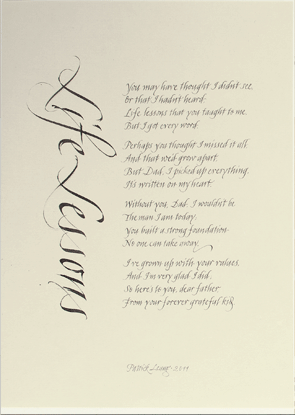 Life Lessons
You may have thought I didn't see,
Or that I hadn't heard
Life lessons that you taught to me,
But I got every word.
Perhaps you thought I missed it all
And that we'd grow apart,
But Dad, I picked up everything,
It's written on my heart.
Without you, Dad, I wouldn't be
The man I am today;
You built a strong foundation
No one can take away.
I've grown up with your values,
And I'm very glad I did,
So here's to you, dear father,
From your forever grateful kid.
Patrick